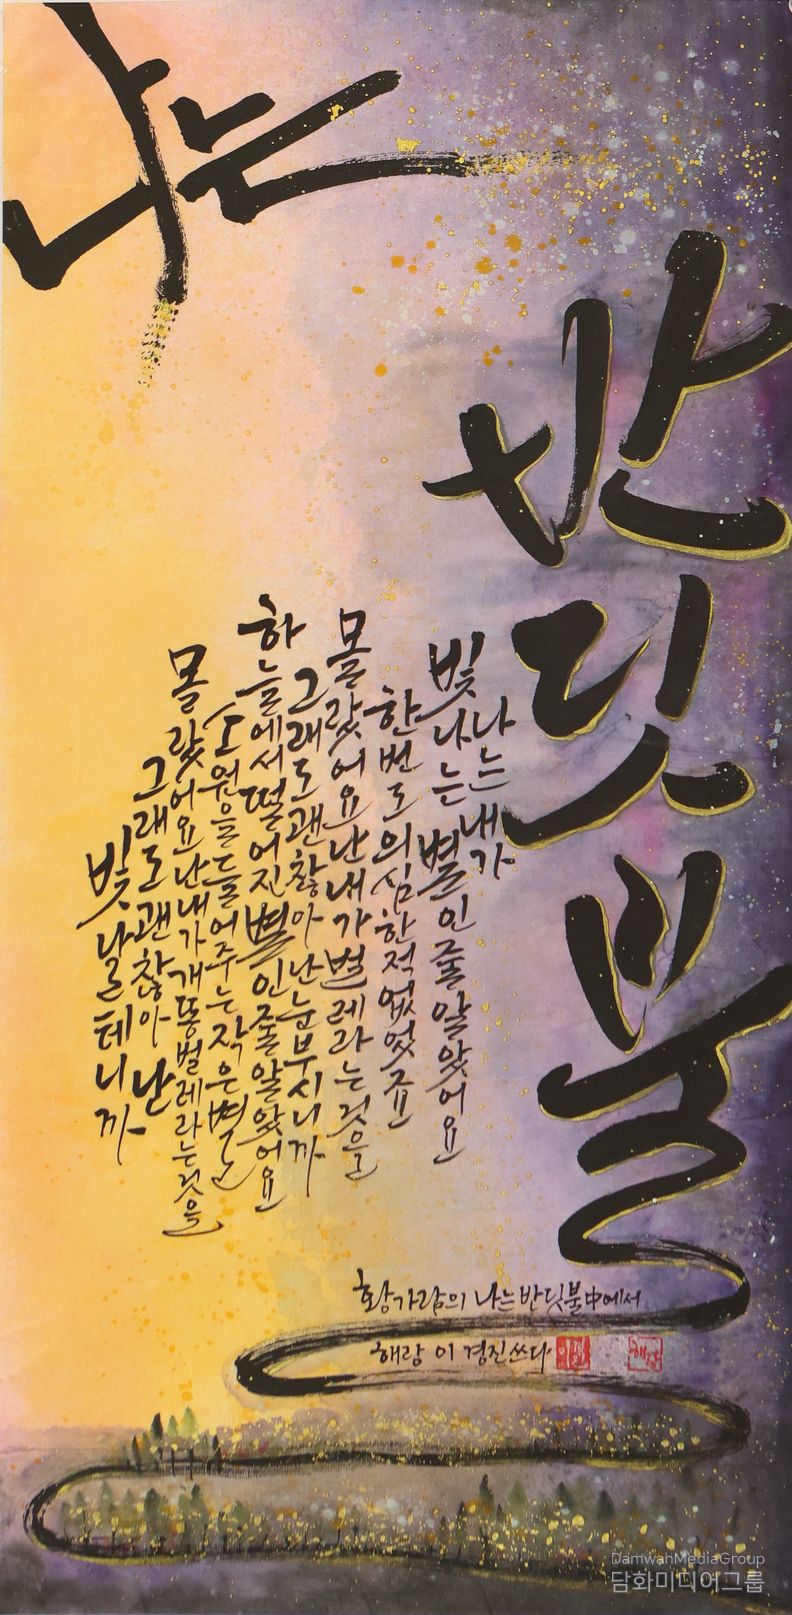 나는
반딧불
나는 내가
빛나는 별인 줄 알았어요
한번도 의심한 적 없었죠
몰랐어요 난 내가 벌레라는 것을
그래도 괜찮아 난 눈부시니까
하늘에서 떨어진 별인 줄 알았어요
소원을 들어주는 작은 별
몰랐어요 난 내가 개똥벌레라는 것을
그래도 괜찮아 난
빛날 테니까
황가람의 나는 반딧불 中에서
해람 이경진 쓰다
DamwahMediaGroup
담화미디어그룹